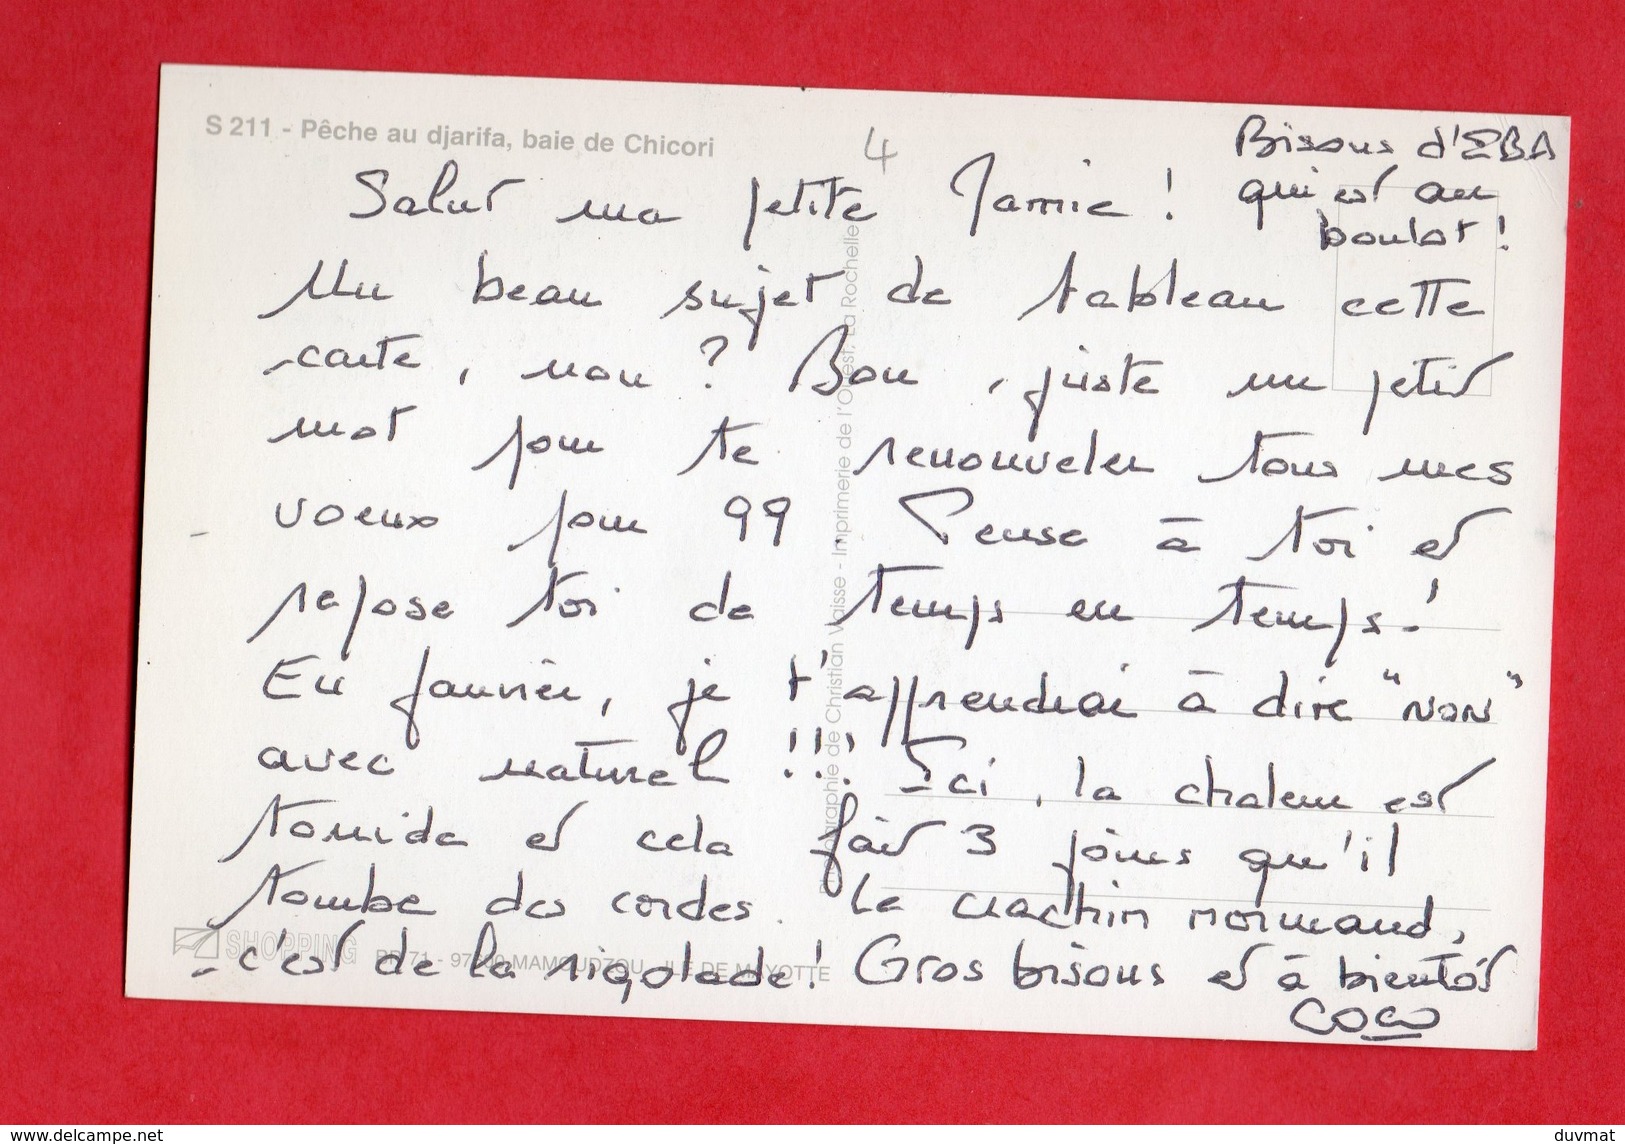 S 211 - Pêche au djarifa, baie de Chicori
4
Bisous d'EBA
qui est au
boulot !
Salut ma petite Jamie !
Un beau sujet de tableau cette
carte, non ? Bon, juste un petit
mot pour te renouveler tous mes
voeux pour 99. Pense à toi et
repose toi de temps en temps !
En janvier, je t'apprendrai à dire "NON"
avec naturel !!! Ici, la chaleur est
torride et cela fait 3 jours qu'il
tombe des cordes. Le crachin normand,
c'est de la rigolade ! Gros bisous et à bientôt
COCO
Photographie de Christian Vaisse - Imprimerie de l'Ouest, La Rochelle
SHOPPING
MAMOUDZOU ILE DE MAYOTTE
www.delcampe.net
duvmat